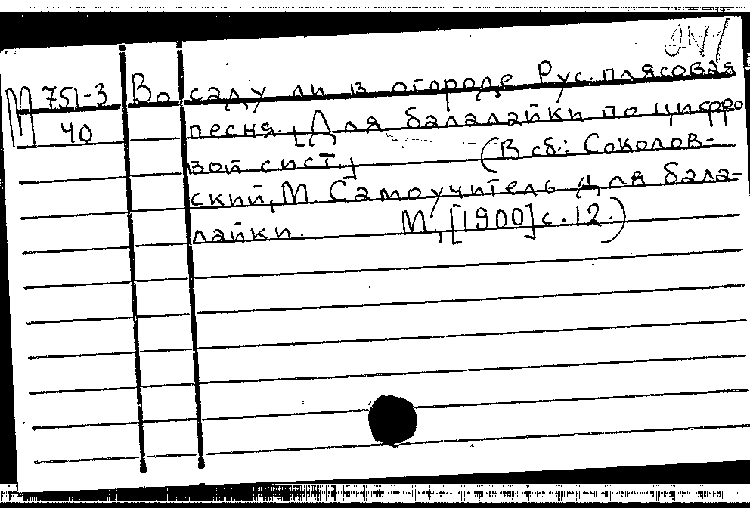 М 751-3
40
Во саду ли в огороде Рус. плясовая
песня. [Для балалайки по цифро
вой сист.] (В сб.: Соколов-
ский, М. Самоучитель для бала-
лайки. М, [1900] с. 12.)